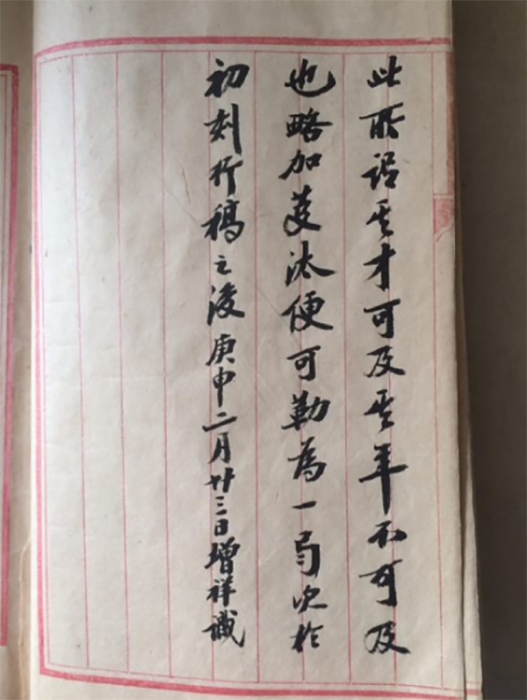 此所謂其才可及其年不可及
也略加芟汰便可勒為一局次於
初刻行稿之後庚申二月廿三日增祥識